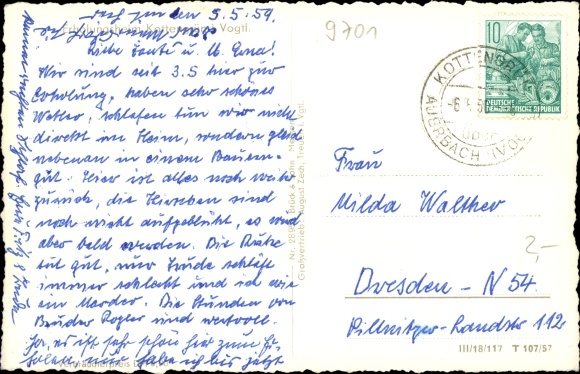 5.5.59.
9701
Erholungsheim Kottengrün Vogtl.
Liebe Tante u. M. Erna!
Wir sind seit 3.5 hier zur
Erholung, haben sehr schönes
Wetter, schlafen tun wir nicht
direkt im Heim, sondern gleich
nebenan in einem Bauern-
gut. Hier ist alles noch weit
zurück, die Kirschen sind
noch nicht aufgeblüht, es wird
aber bald werden. Die Ruhe
tut gut, nur Trude schläft
immer schlecht und ich wie
ein Marder. Die Stunden von
Bruder Kogler sind wertvoll.
Ja, es ist sehr schön hier zum
habe ich bis jetzt
10
DEUTSCHE
DEMOKRATISCHE REPUBLIK
KOTTENGRÜN
AUERBACH (VOGTL)
Frau
Milda Walther
2,-
Dresden - N 54
Pillnitzer-Landstr 112
III/18/117 T 107/57